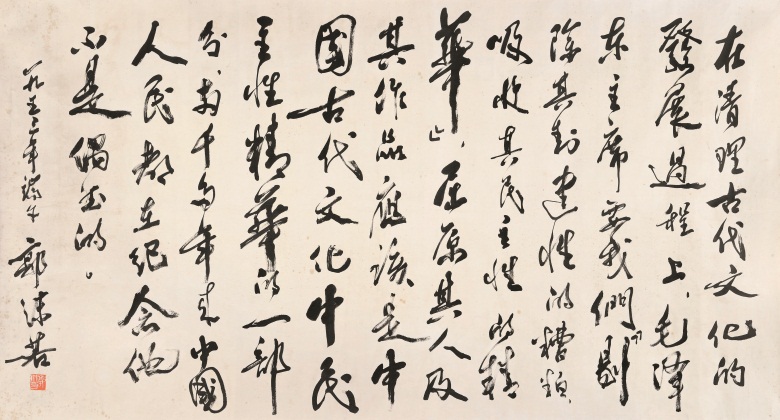 在清理古代文化的
發展過程上，毛澤
東主席要我們「剔
除其封建性的糟粕，
吸收其民主性的精
華」，屈原其人及
其作品應該是中
國古代文化中民
主性精華的一部
分，兩千多年來中國
人民都在紀念他
不是偶然的。
一九五年端午 郭沫若